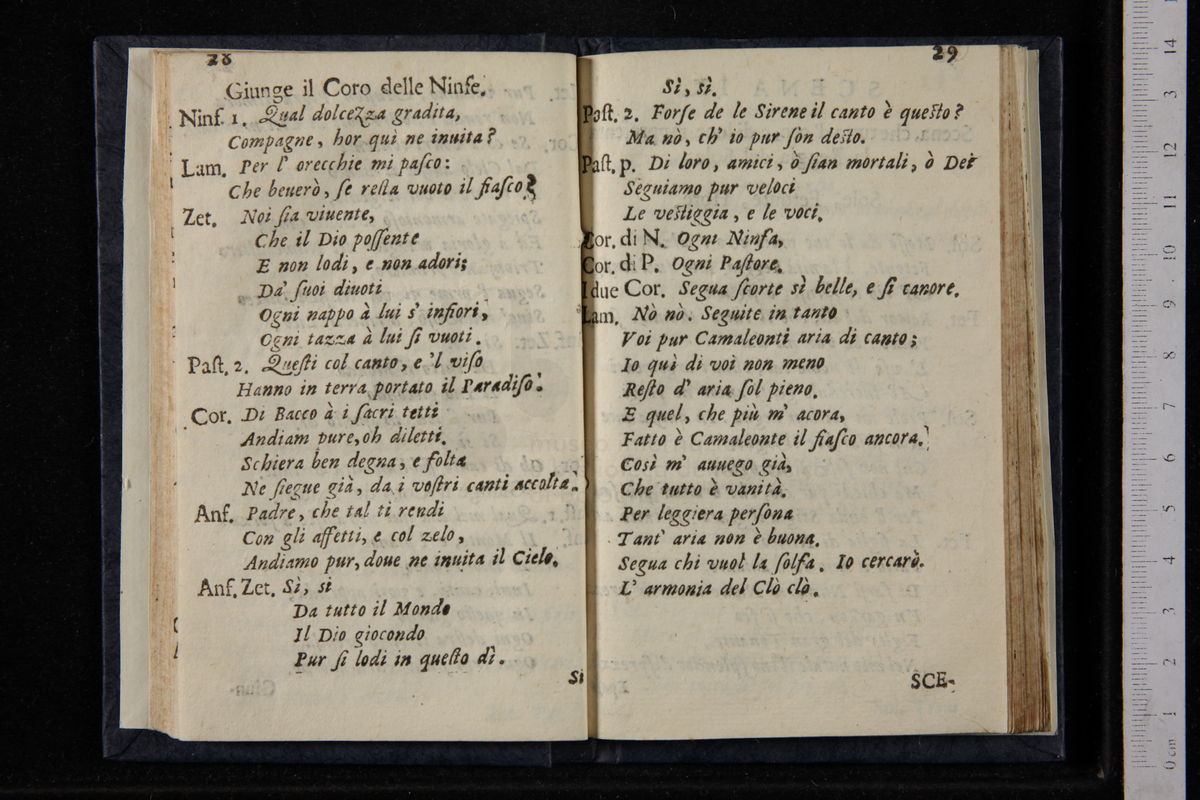 28
Giunge il Coro delle Ninfe.
Ninf. 1. Qual dolcezza gradita,
Compagne, hor quì ne inuita?
Lam. Per l' orecchie mi paſco:
Che beuerò, ſe reſta vuoto il fiaſco?
Zet. Noi ſia viuente,
Che il Dio poſſente
E non lodi, e non adori;
Da' ſuoi diuoti
Ogni nappo à lui s' infiori,
Ogni tazza à lui ſi vuoti.
Paſt. 2. Queſti col canto, e 'l viſo
Hanno in terra portato il Paradiſo.
Cor. Di Bacco à i ſacri tetti
Andiam pure, oh diletti.
Schiera ben degna, e folta
Ne ſiegue già, da i voſtri canti accolta.
Anf. Padre, che tal ti rendi
Con gli affetti, e col zelo,
Andiamo pur, doue ne inuita il Cielo.
Anf. Zet. Sì, sì
Da tutto il Mondo
Il Dio giocondo
Pur ſi lodi in queſto dì.
Sì
29
Sì, sì.
Paſt. 2. Forſe de le Sirene il canto è queſto?
Ma nò, ch' io pur ſon deſto.
Paſt. p. Di loro, amici, ò ſian mortali, ò Dei
Seguiamo pur veloci
Le veſtiggia, e le voci.
Cor. di N. Ogni Ninfa,
Cor. di P. Ogni Paſtore.
I due Cor. Segua ſcorte sì belle, e ſi canore.
Lam. Nò nò. Seguite in tanto
Voi pur Camaleonti aria di canto;
Io quì di voi non meno
Reſto d' aria ſol pieno.
E quel, che più m' acora,
Fatto è Camaleonte il fiaſco ancora.
Così m' auuego già,
Che tutto è vanità.
Per leggiera perſona
Tant' aria non è buona.
Segua chi vuol la ſolfa. Io cercarò.
L' armonia del Clò clò.
SCE-